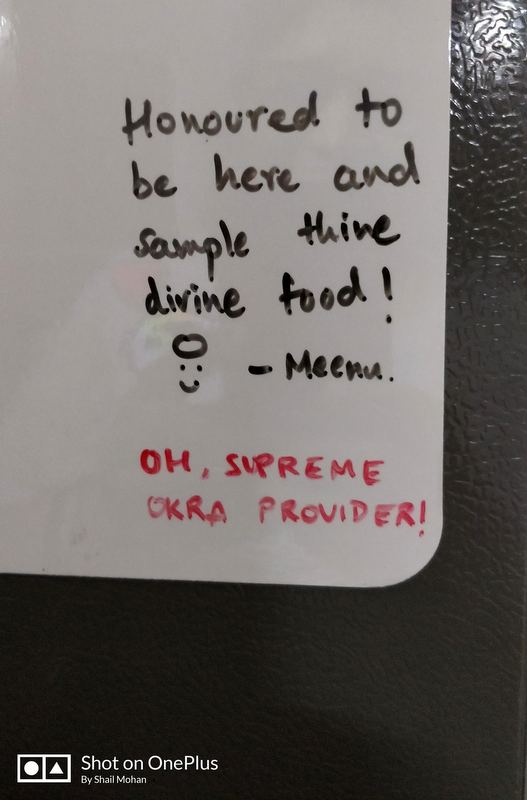 Honoured to
be here and
sample thine
divine food!
- Meenu.
OH, SUPREME
OKRA PROVIDER!
Shot on OnePlus
By Shail Mohan